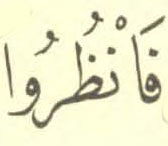 فَانْظُرُوا